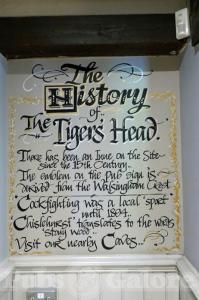 The
History
of..
The Tiger's Head.
There has been an Inne on the Site
since the 15th Century..
The emblem on the pub sign is
derived from the Walsingham Crest
Cockfighting was a local 'sport'
until 1834..
'Chislehurst' translates to the words
'Stony Wood'..
Visit our nearby Caves...